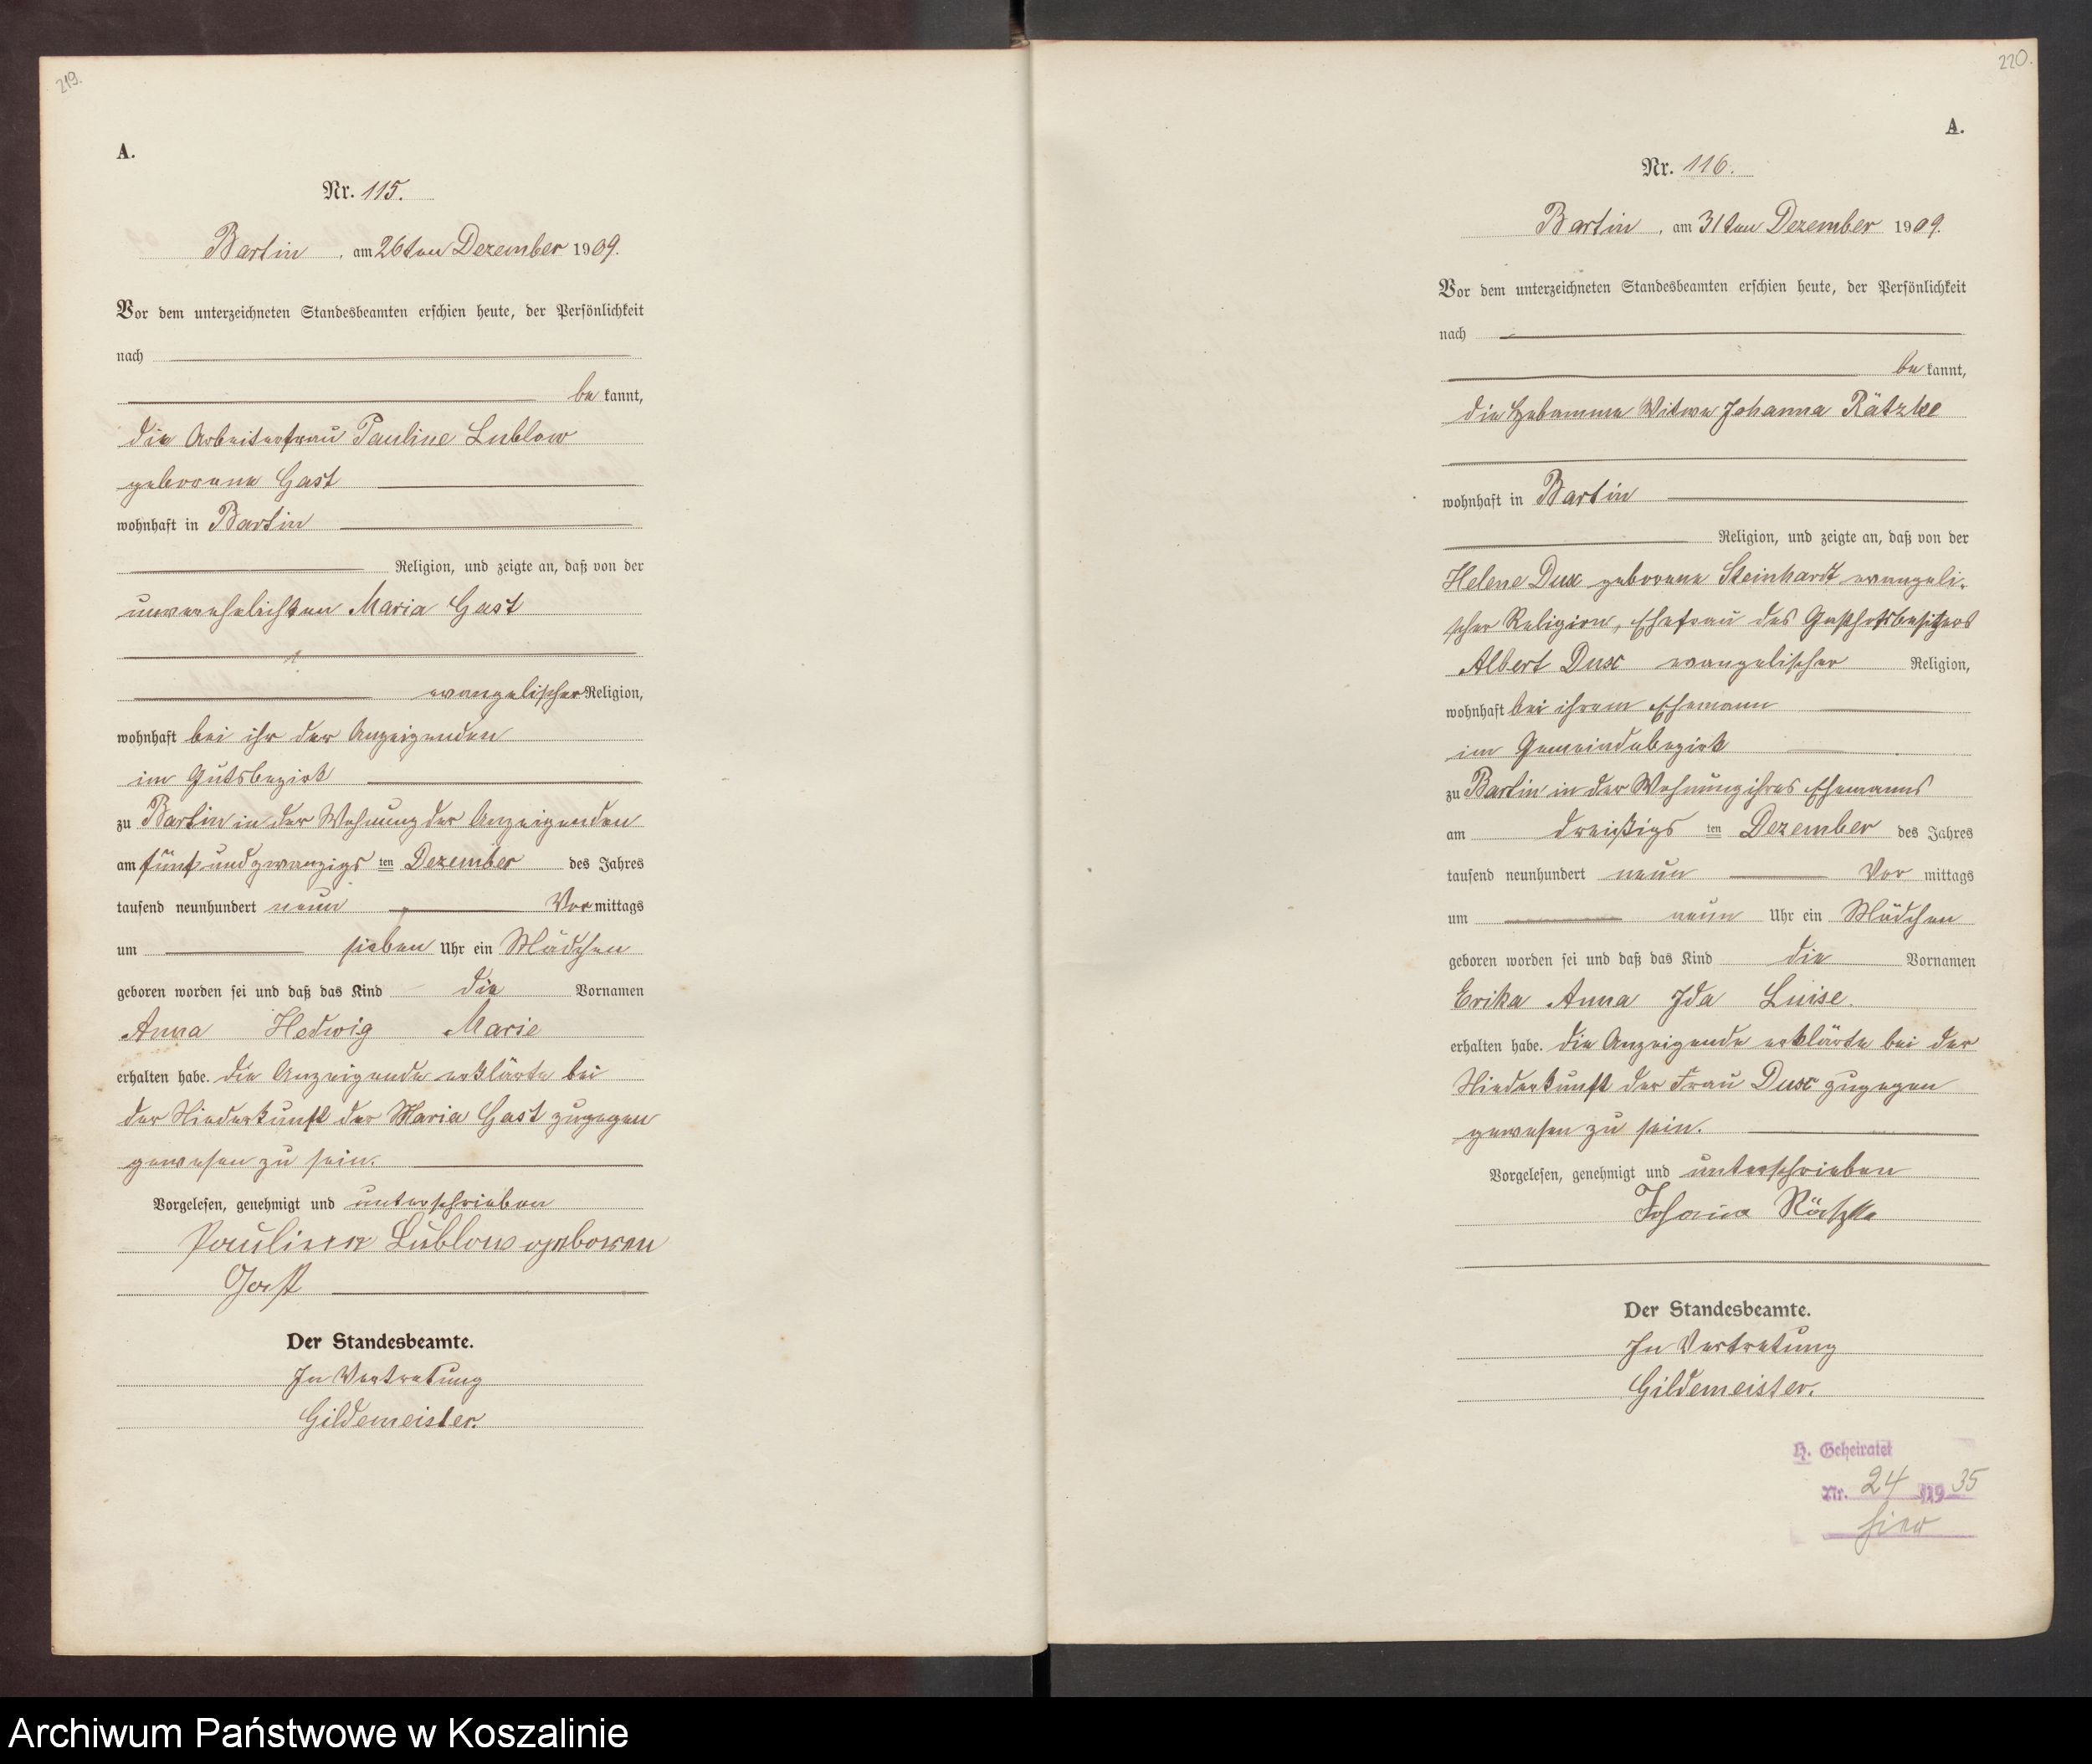 219.
A.
Nr. 115.
Bartin, am 26ten Dezember 1909.
Vor dem unterzeichneten Standesbeamten erschien heute, der Persönlichkeit
nach
bekannt,
die Arbeiterfrau Pauline Lublow
geborene Gast
wohnhaft in Bartin
Religion, und zeigte an, daß von der
unverehelichten Maria Gast
evangelischer Religion,
wohnhaft bei ihr der Anzeigenden
im Gutsbezirk
zu Bartin in der Wohnung der Anzeigenden
am fünfundzwanzigsten Dezember des Jahres
tausend neunhundert neun Vormittags
um sieben Uhr ein Mädchen
geboren worden sei und daß das Kind die Vornamen
Anna Hedwig Marie
erhalten habe. Die Anzeigende erklärte bei
der Niederkunft der Maria Gast zugegen
gewesen zu sein.
Vorgelesen, genehmigt und unterschrieben
Pauline Lublow geboren
Gast
Der Standesbeamte.
In Vertretung
Gildemeister.
220.
A.
Nr. 116.
Bartin, am 31ten Dezember 1909.
Vor dem unterzeichneten Standesbeamten erschien heute, der Persönlichkeit
nach
bekannt,
die Hebamme Witwe Johanna Rätzke
wohnhaft in Bartin
Religion, und zeigte an, daß von der
Helene Dux geborene Steinhardt evangeli-
scher Religion, Ehefrau des Gasthofsbesitzers
Albert Dux evangelischer Religion,
wohnhaft bei ihrem Ehemann
im Gemeindebezirk
zu Bartin in der Wohnung ihres Ehemanns
am dreißigsten Dezember des Jahres
tausend neunhundert neun Vormittags
um neun Uhr ein Mädchen
geboren worden sei und daß das Kind die Vornamen
Erika Anna Ida Luise.
erhalten habe. Die Anzeigende erklärte bei der
Niederkunft der Frau Dux zugegen
gewesen zu sein.
Vorgelesen, genehmigt und unterschrieben
Johanna Rätzke
Der Standesbeamte.
In Vertretung
Gildemeister.
H. Geheiratet
Nr. 24 1935
hier
Archiwum Państwowe w Koszalinie